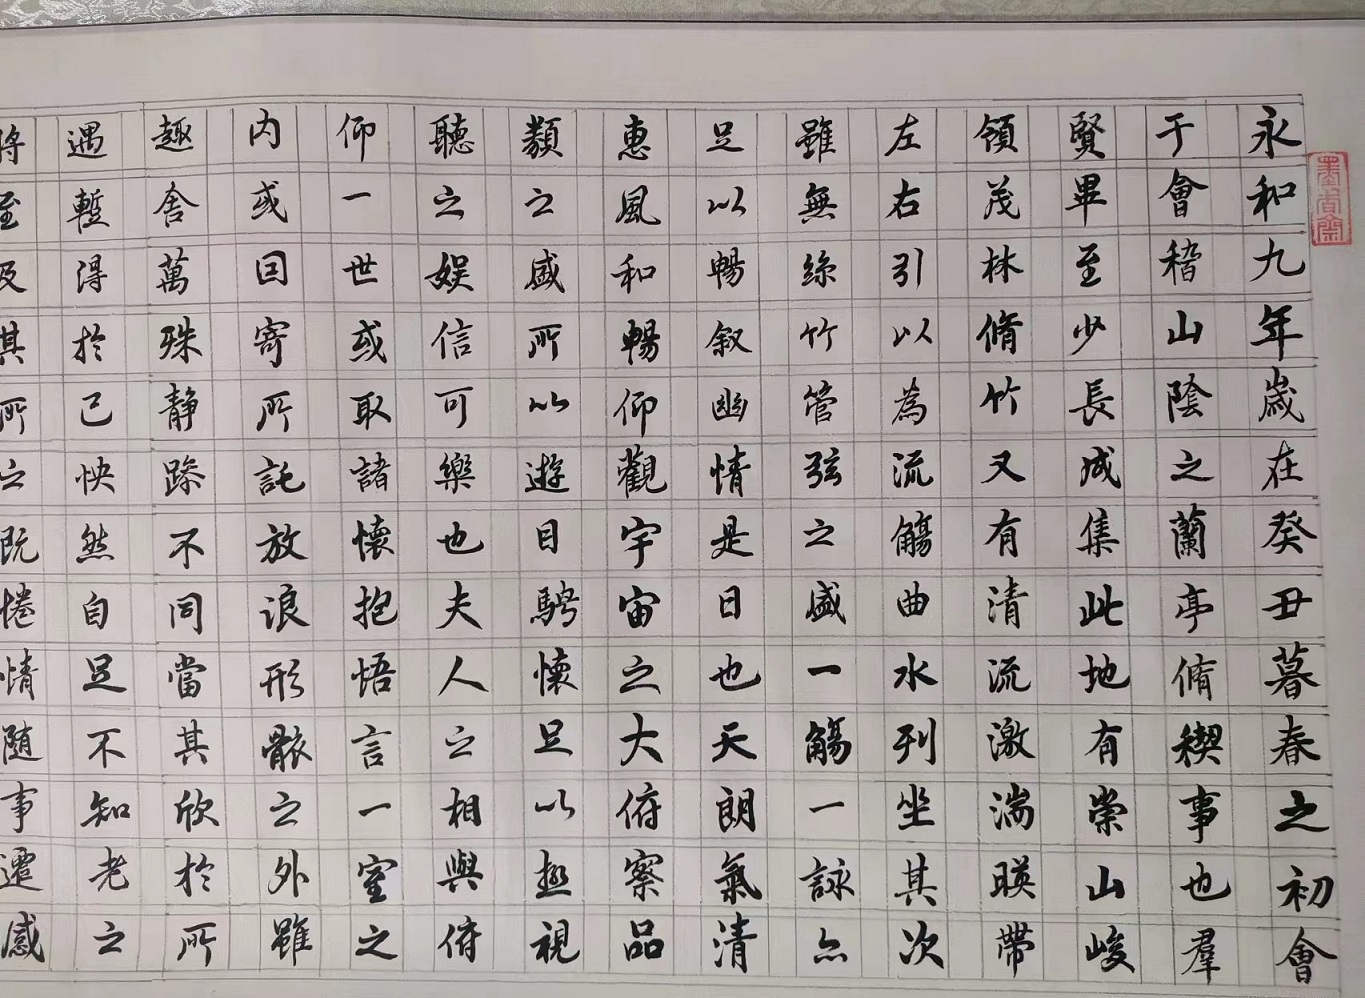 永和九年歲在癸丑暮春之初會
于會稽山陰之蘭亭脩稧事也羣
賢畢至少長咸集此地有崇山峻
領茂林脩竹又有清流激湍暎帶
左右引以為流觴曲水列坐其次
雖無絲竹管弦之盛一觴一詠亦
足以暢叙幽情是日也天朗氣清
惠風和暢仰觀宇宙之大俯察品
類之盛所以遊目騁懷足以極視
聽之娛信可樂也夫人之相與俯
仰一世或取諸懷抱悟言一室之
内或因寄所託放浪形骸之外雖
趣舍萬殊静躁不同當其欣於所
遇暫得於己怏然自足不知老之
將至及其所之既惓情随事遷感